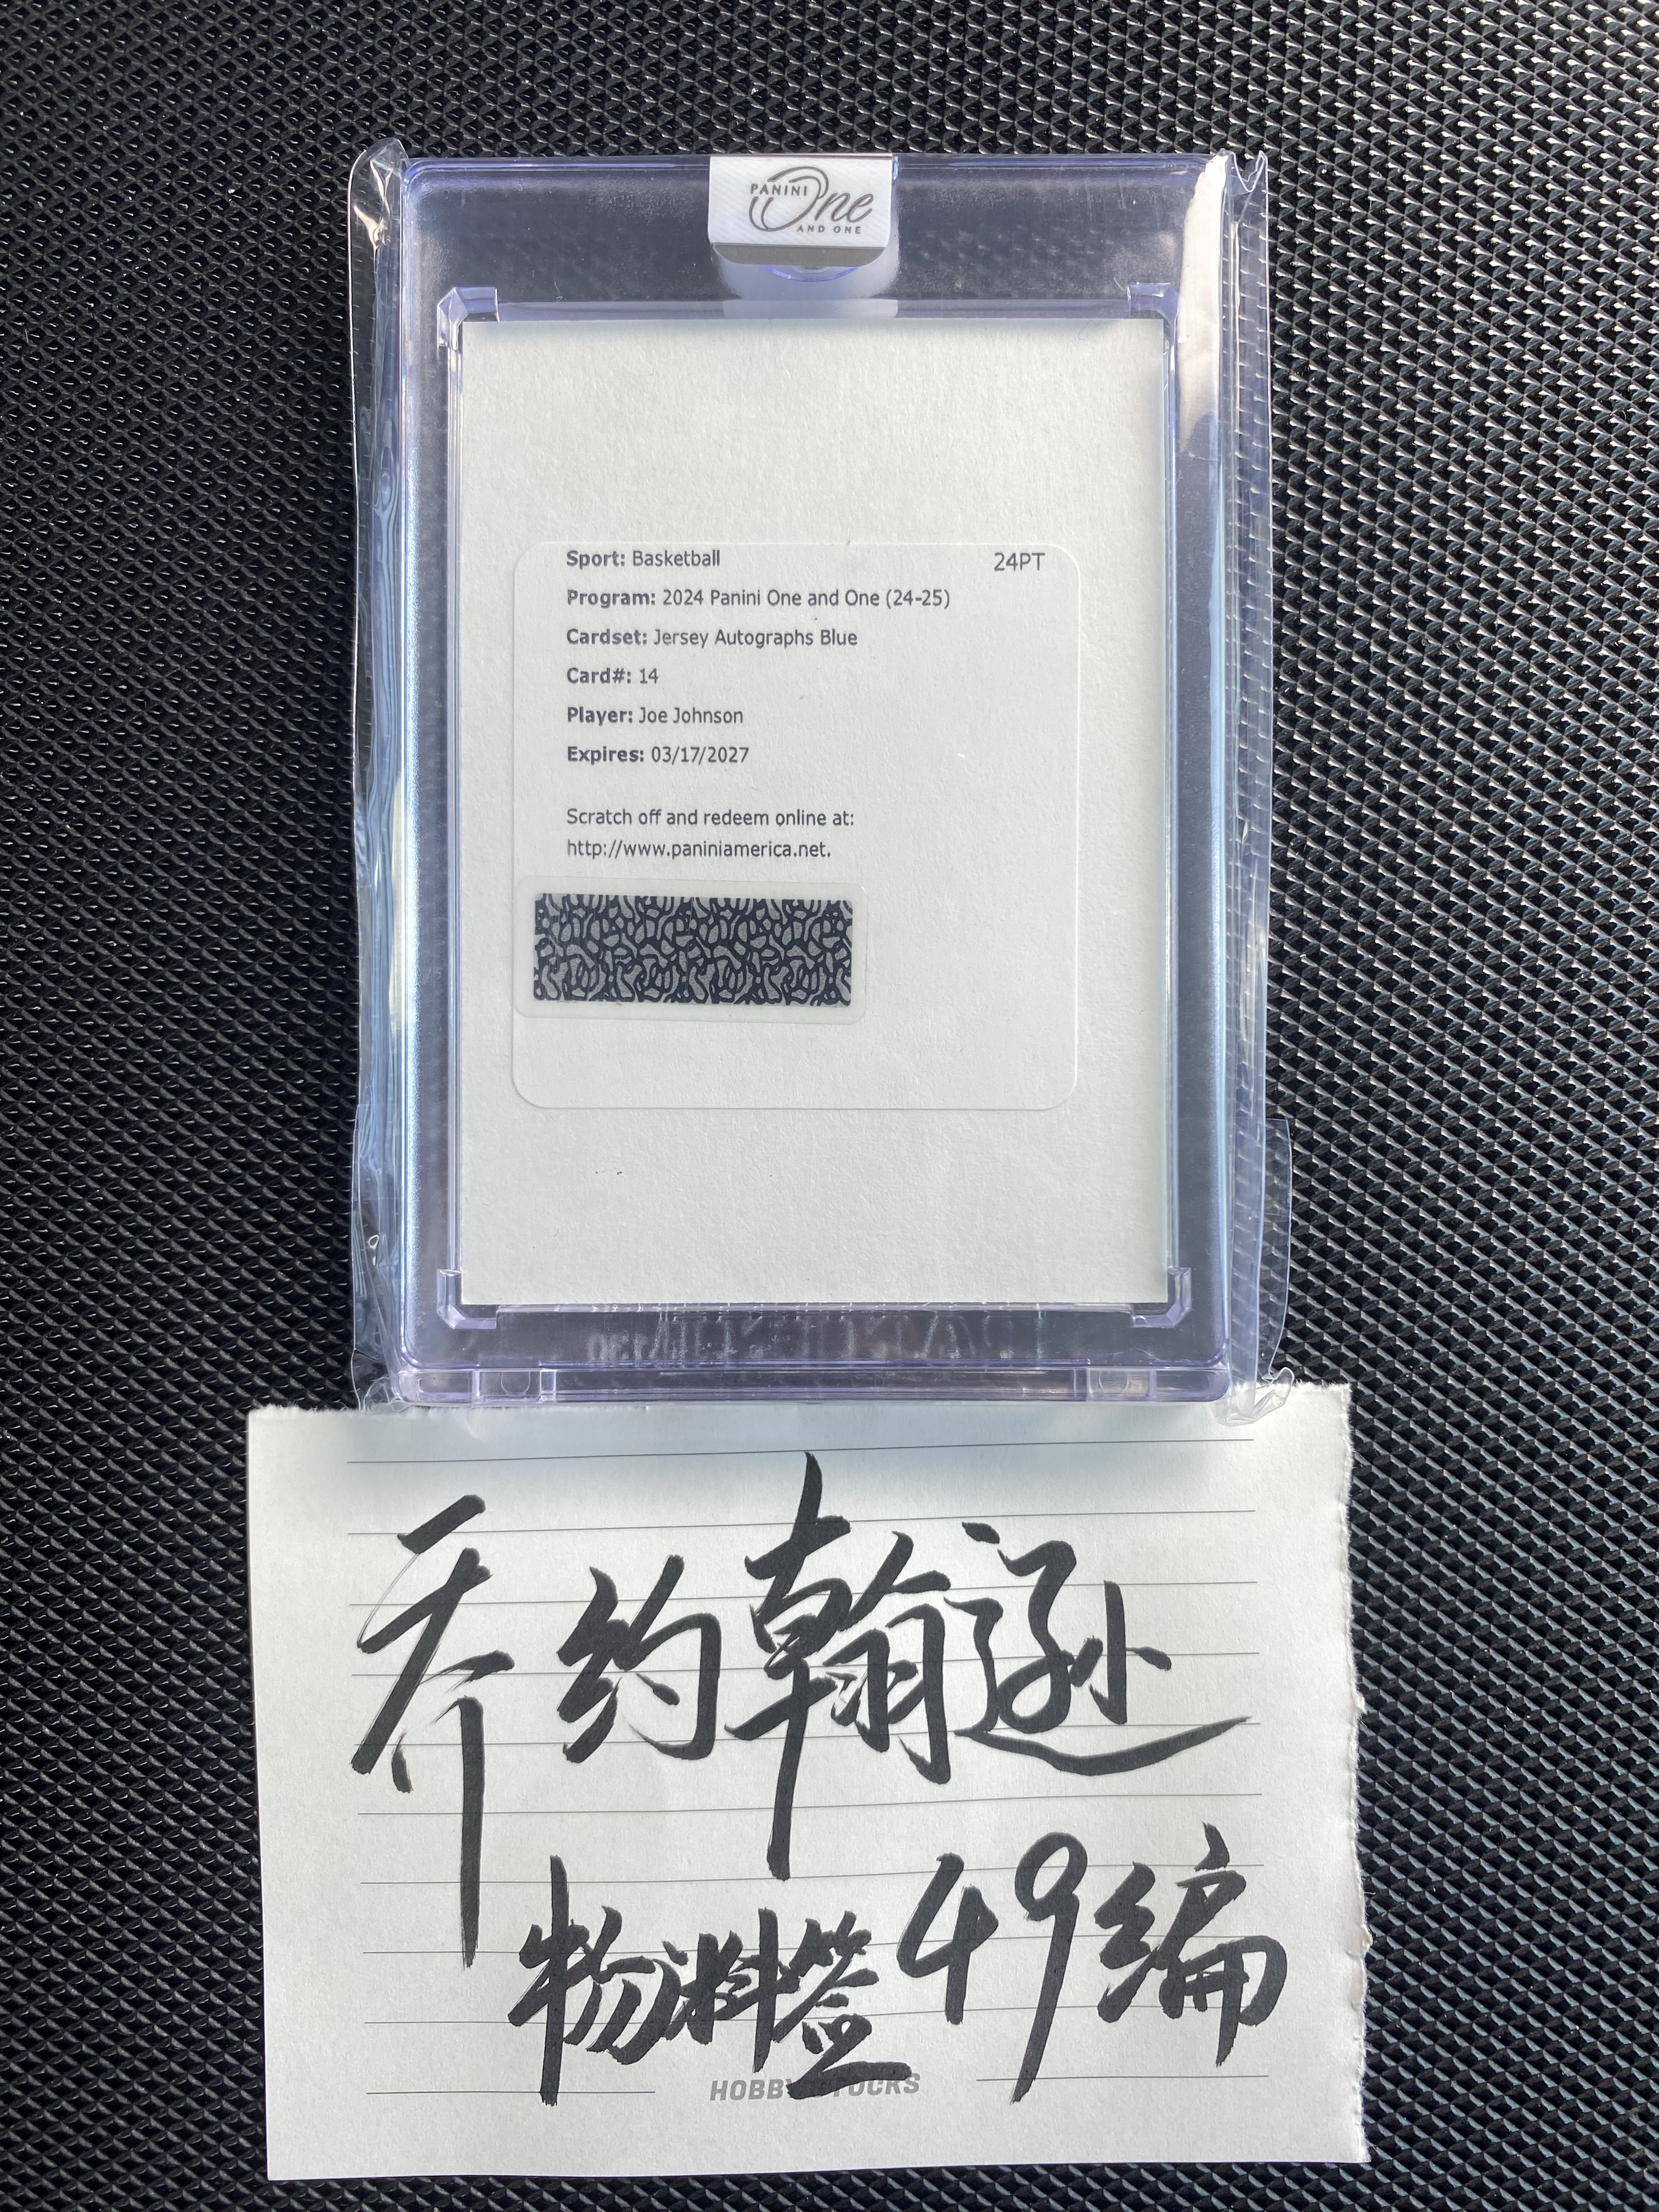 PANINI
One
AND ONE
Sport: Basketball 24PT
Program: 2024 Panini One and One (24-25)
Cardset: Jersey Autographs Blue
Card#: 14
Player: Joe Johnson
Expires: 03/17/2027
Scratch off and redeem online at:
http://www.paniniamerica.net.
乔约翰逊
物料签49编